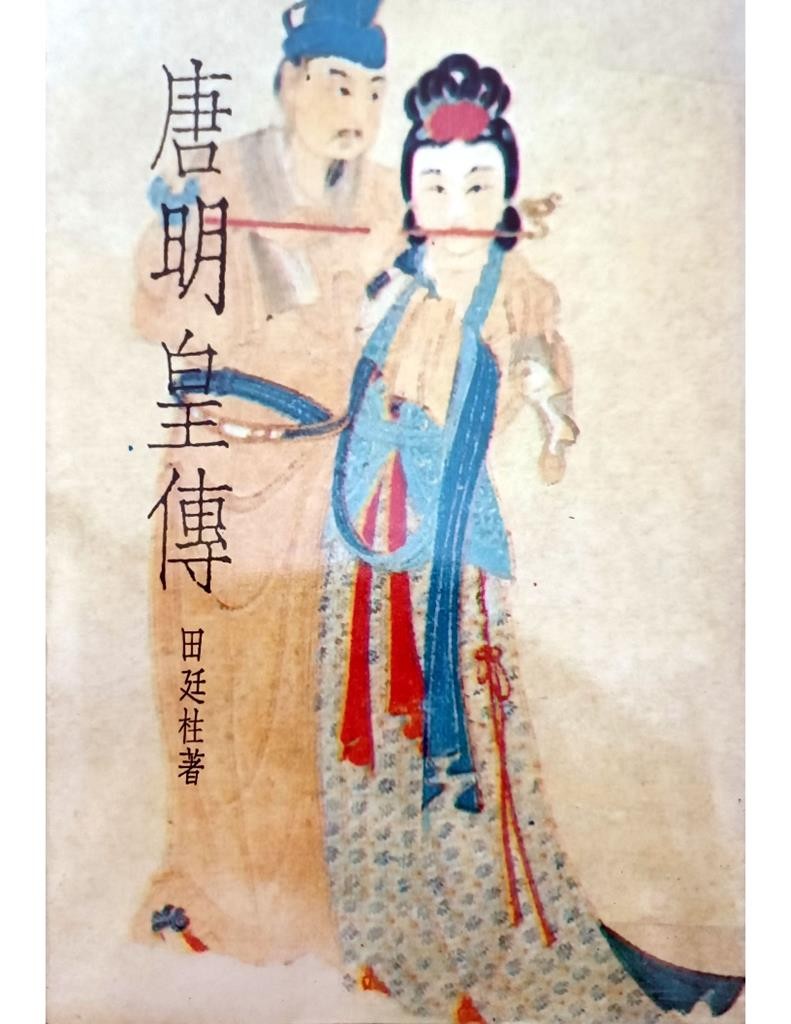 唐明皇傳
田廷柱著